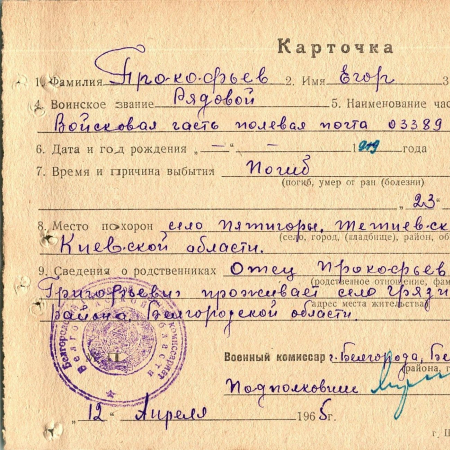 Карточка
1. Фамилия Прокофьев 2. Имя Егор 3
4. Воинское звание Рядовой 5. Наименование час
Войсковая часть полевая почта 03389
6. Дата и год рождения „ — “ — 1919 года
7. Время и причина выбытия Погиб
(погиб, умер от ран (болезни)
„ 23 "
8. Место похорон село Пятигоры, Тетиевск
(село, город, (кладбище), район, об
Киевской области.
9. Сведения о родственниках Отец Прокофьев
(родственное отношение, фам
Григорьевич проживает село Гряз
адрес места жительства)
района Белгородской области.
Военный комиссар г. Белгорода, Бе
(района, г
Подполковник
„ 12 " Апреля 1965 г.
г. Ш